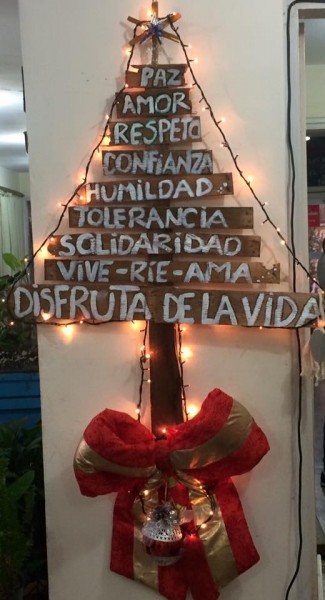 PAZ
AMOR
RESPETO
CONFIANZA
HUMILDAD
TOLERANCIA
SOLIDARIDAD
VIVE-RIE-AMA
DISFRUTA DE LA VIDA